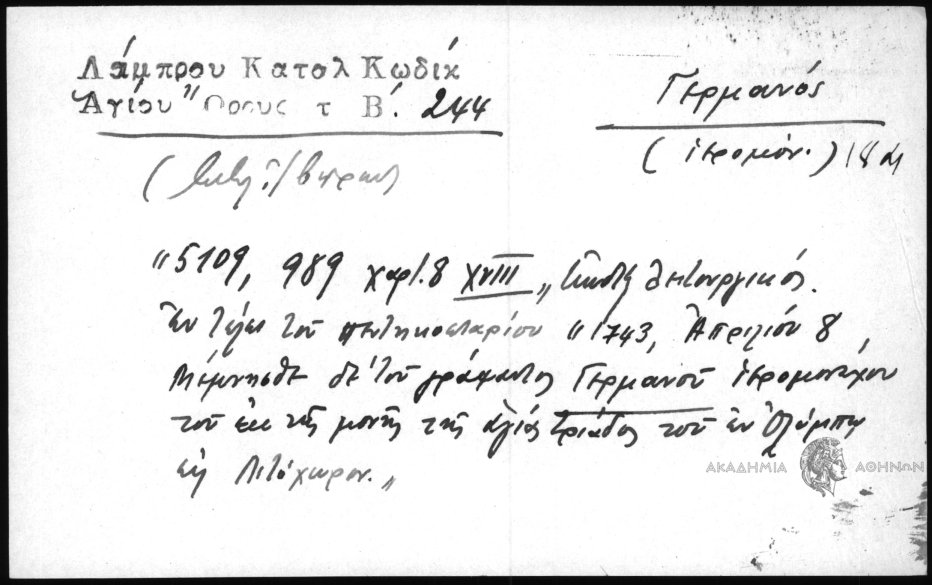 Λάμπρου Κατολ Κωδίκ
Ἁγίου Ὄρους τ Β΄. 244
Γερμανός
(ἱερομόν.) 18
"5109, 989 χαρτ. 8 XVIII " λειτουργικός.
Ἐν τέλει τοῦ πεντηκοσταρίου "1743, Ἀπριλίου 8,
Μέμνησθε δὲ τοῦ γράψαντος Γερμανοῦ ἱερομονάχου
τοῦ ἐκ τῆς μονῆς τῆς ἁγίας τριάδος τοῦ ἐν Ὀλύμπῳ
εἰς Λιτόχωρον."
ΑΚΑΔΗΜΙΑ ΑΘΗΝΩΝ